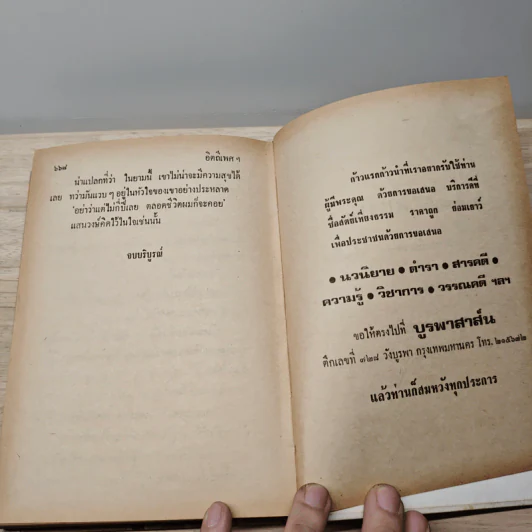 ๖๖๘
อิตถีเพศ ๆ
น่าแปลกที่ว่า ในยามนี้ เขาไม่น่าจะมีความสุขได้
เลย ทว่ามันแวบ ๆ อยู่ในหัวใจของเขาอย่างประหลาด
'อย่าว่าแต่ไม่กี่ปีเลย ตลอดชีวิตผมก็จะคอย'
มนสวงษ์คิดไว้ในใจเช่นนั้น
จบบริบูรณ์
ก้าวแรกก้าวนำที่เราอยากรับใช้ท่าน
ผู้มีพระคุณ ด้วยการขอเสนอ บริการดีที่
ซื่อสัตย์เที่ยงธรรม ราคาถูก ย่อมเยาว์
เพื่อประชาชนด้วยการขอเสนอ
• นวนิยาย • ตำรา • สารคดี •
ความรู้ • วิชาการ • วรรณคดี ฯลฯ
ขอให้ตรงไปที่ บูรพาสาส์น
ตึกเลขที่ ๓๒๘ วังบูรพา กรุงเทพมหานคร โทร. ๒๑๕๖๘๒
แล้วท่านก็สมหวังทุกประการ